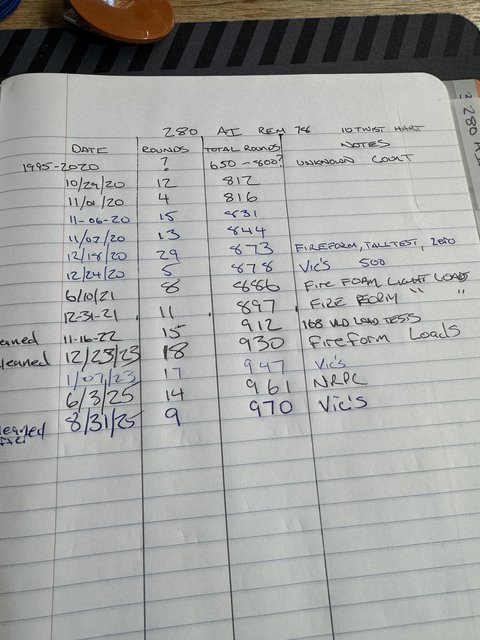 280 AI REM 10 TWIST HART
DATE ROUNDS TOTAL ROUNDS NOTES
1995-2020 ? 650-800? UNKNOWN COUNT
10/29/20 12 812
11/01/20 4 816
11-06-20 15 831
11/07/20 13 844
12/18/20 29 873 FIREFORM, TALLTEST, ZERO
12/24/20 5 878 Vic's 500
6/10/21 8 886 FIRE FORM LIGHT LOADS
12-31-21 11 897 FIRE FORM " "
eaned 11-16-22 15 912 168 VLD LOAD TESTS
leaned 12/23/23 18 930 Fireform Loads
1/07/23 17 947 Vic's
6/3/25 14 961 NRPC
leaned 8/31/25 9 970 Vic's
280